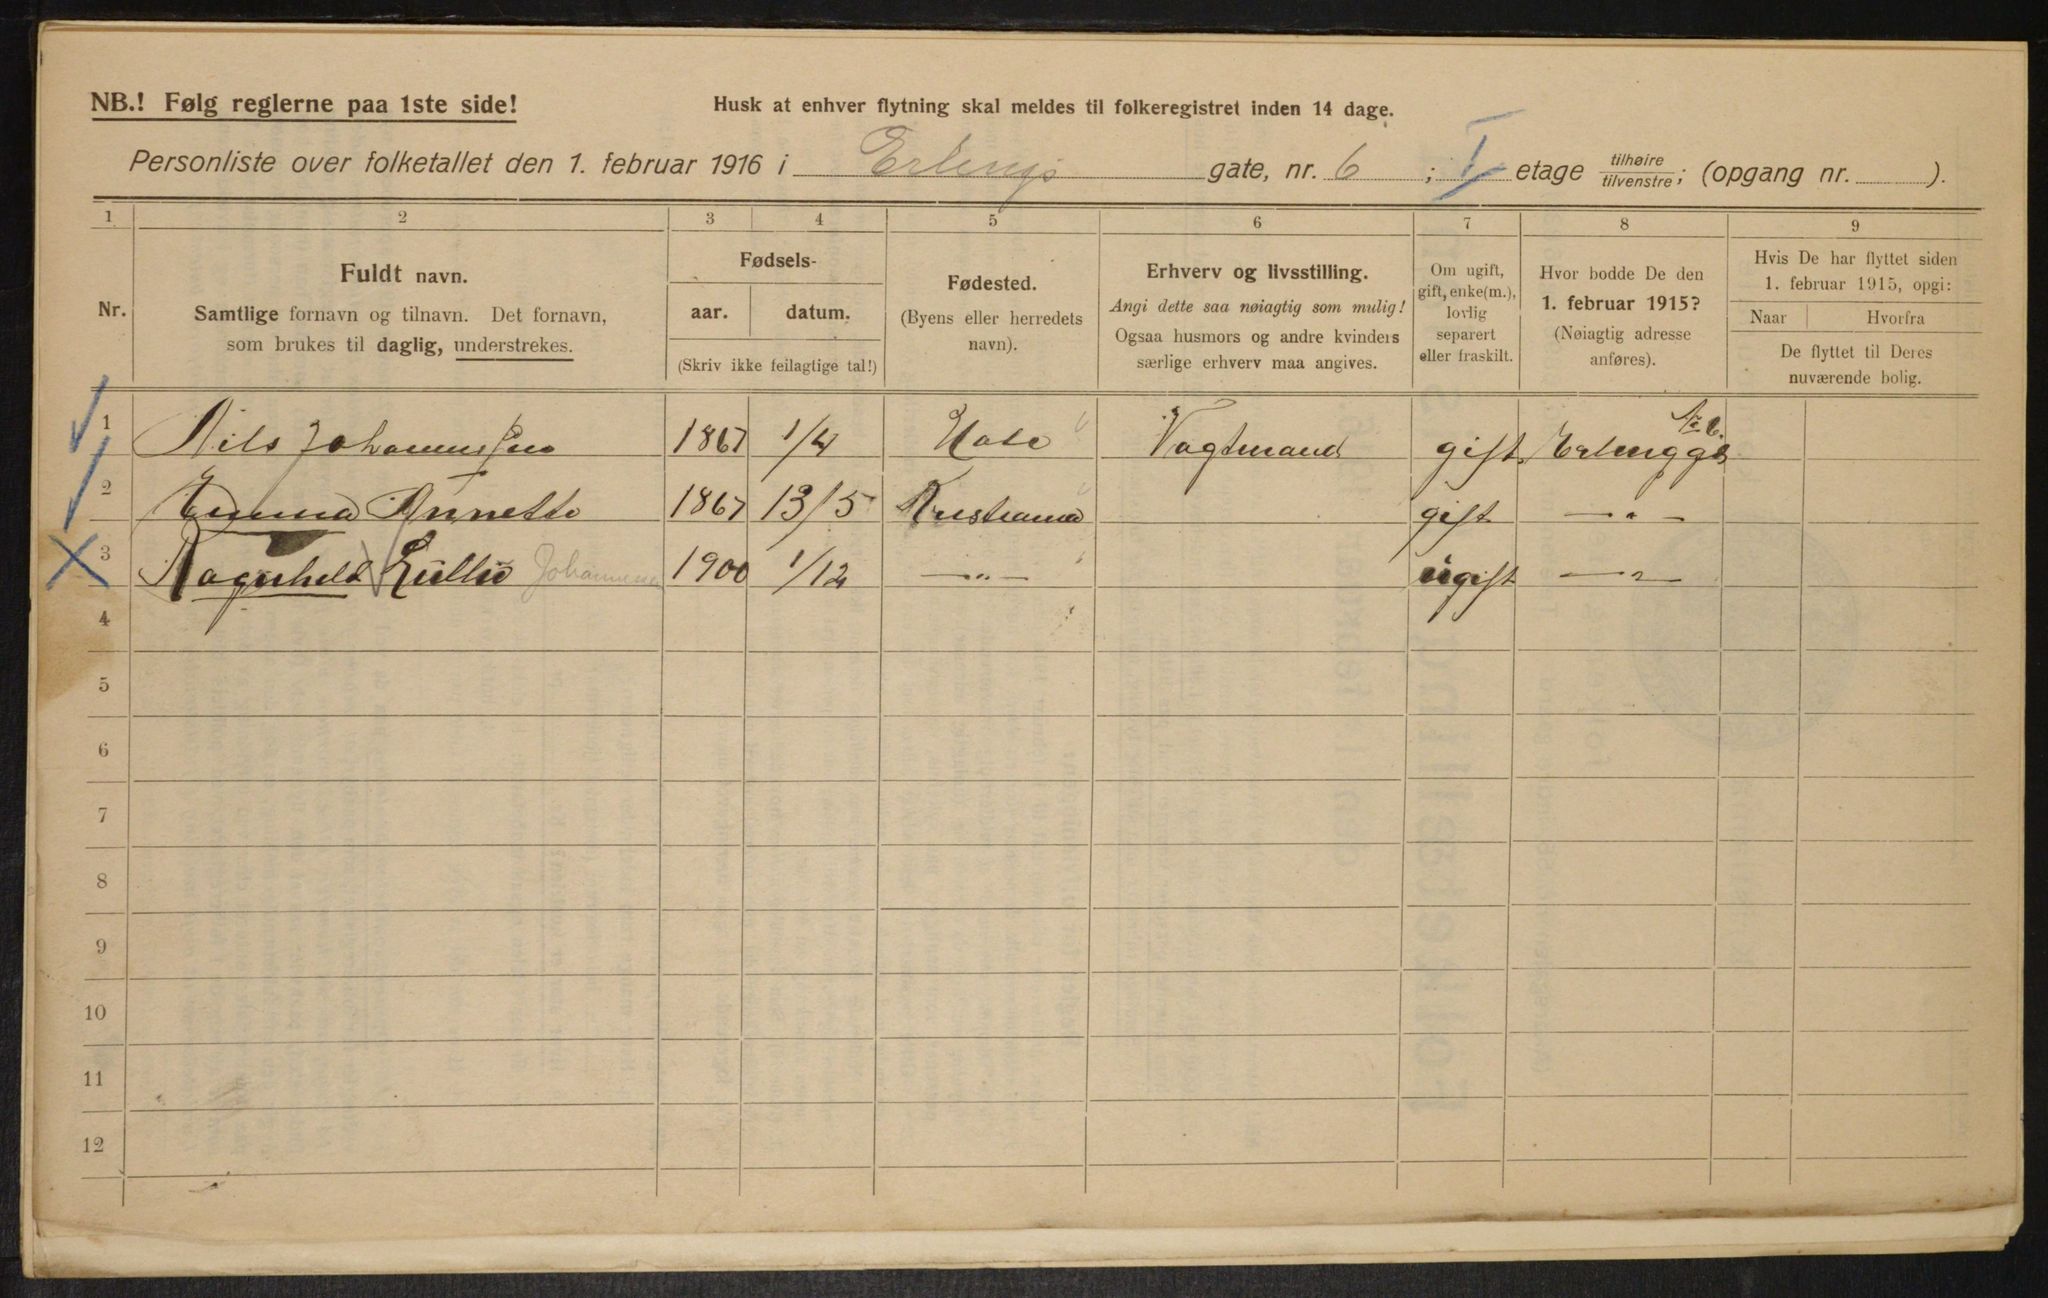 NB.! Følg reglerne paa 1ste side!
Husk at enhver flytning skal meldes til folkeregistret inden 14 dage.
Personliste over folketallet den 1. februar 1916 i Erlings gate, nr. 6 ; I etage tilhøire / tilvenstre; (opgang nr. ).
1 2 3 4 5 6 7 8 9
Nr.
Fuldt navn.
Samtlige fornavn og tilnavn. Det fornavn,
som brukes til daglig, understrekes.
Fødsels-
aar. datum.
(Skriv ikke feilagtige tal!)
Fødested.
(Byens eller herredets
navn).
Erhverv og livsstilling.
Angi dette saa nøiagtig som mulig!
Ogsaa husmors og andre kvinders
særlige erhverv maa angives.
Om ugift,
gift, enke(m.),
lovlig
separert
eller fraskilt.
Hvor bodde De den
1. februar 1915?
(Nøiagtig adresse
anføres).
Hvis De har flyttet siden
1. februar 1915, opgi:
Naar Hvorfra
De flyttet til Deres
nuværende bolig.
1 Nils Johannessen 1867 1/4 Hole Vagtmand gift Erlingsgs No 6.
2 Emma Annette 1867 13/5 Kristiania gift —„—
3 Ragnhild Lillie 1900 1/12 —„— ugift —„—
4
5
6
7
8
9
10
11
12